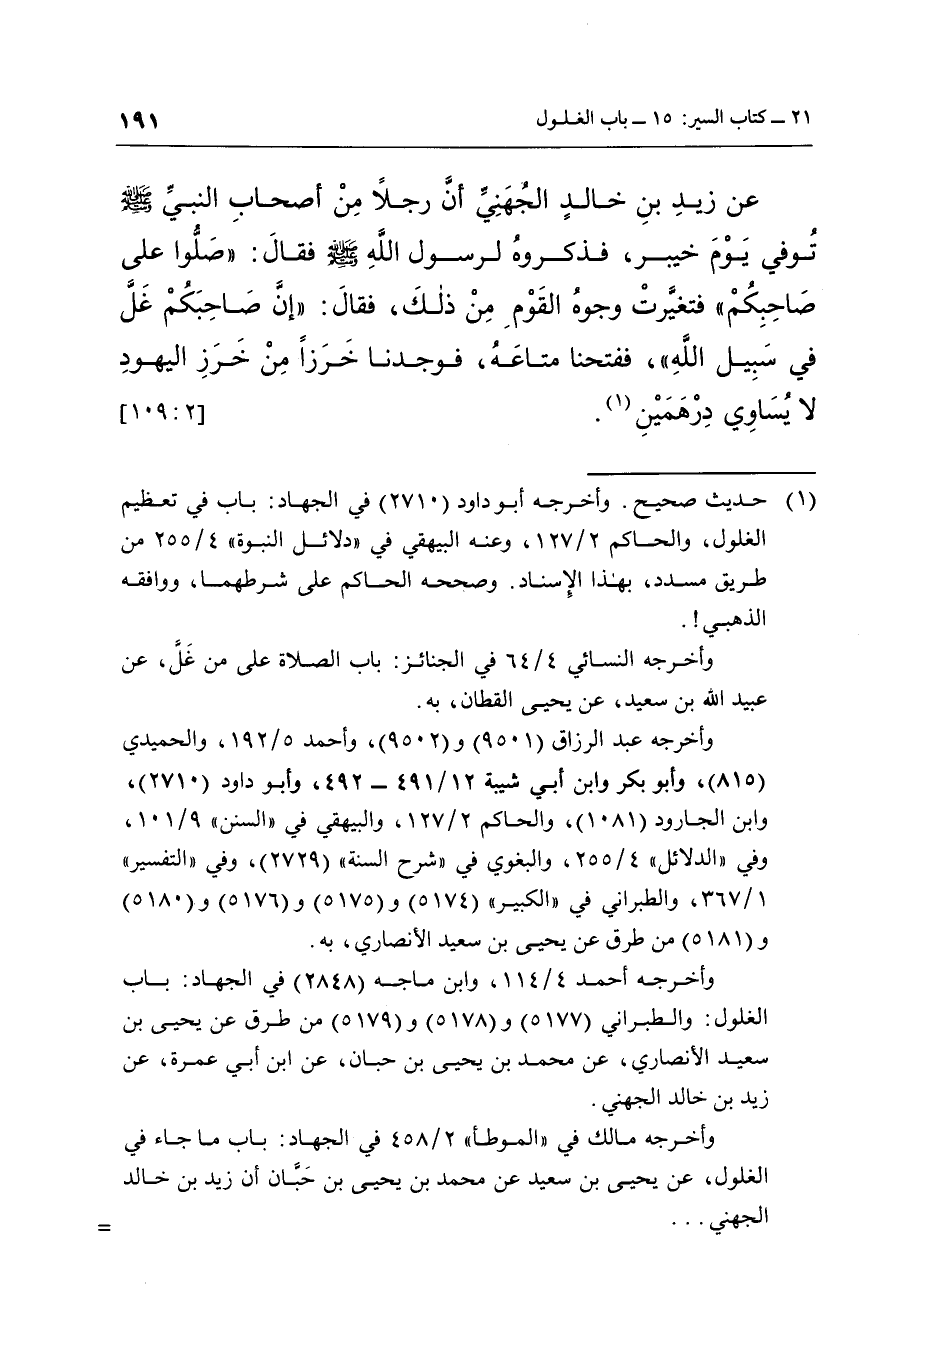 ٢١ ـ كتاب السير: ١٥ ـ باب الغلول ١٩١
عن زيدِ بنِ خالدٍ الجُهَنِيِّ أنَّ رجلاً مِنْ أصحابِ النبيِّ ﷺ
تُوفي يَوْمَ خيبر، فذكروهُ لرسول اللَّهِ ﷺ فقالَ: «صَلُّوا على
صَاحِبِكُمْ» فتغيَّرتْ وجوهُ القَوْمِ مِنْ ذلكَ، فقالَ: «إنَّ صَاحِبَكُمْ غَلَّ
في سَبِيلِ اللَّهِ»، ففتحنا متاعَهُ، فوجدنا خَرَزاً مِنْ خَرَزِ اليهودِ
لا يُسَاوِي دِرْهَمَيْنِ (١). [٢: ١٠٩]
(١) حديث صحيح. وأخرجه أبو داود (٢٧١٠) في الجهاد: باب في تعظيم
الغلول، والحاكم ١٢٧/٢، وعنه البيهقي في «دلائل النبوة» ٢٥٥/٤ من
طريق مسدد، بهذا الإسناد. وصححه الحاكم على شرطهما، ووافقه
الذهبي!.
وأخرجه النسائي ٦٤/٤ في الجنائز: باب الصلاة على من غَلَّ، عن
عبيد الله بن سعيد، عن يحيى القطان، به.
وأخرجه عبد الرزاق (٩٥٠١) و(٩٥٠٢)، وأحمد ١٩٢/٥، والحميدي
(٨١٥)، وأبو بكر وابن أبي شيبة ٤٩١/١٢ ـ ٤٩٢، وأبو داود (٢٧١٠)،
وابن الجارود (١٠٨١)، والحاكم ١٢٧/٢، والبيهقي في «السنن» ١٠١/٩،
وفي «الدلائل» ٢٥٥/٤، والبغوي في «شرح السنة» (٢٧٢٩)، وفي «التفسير»
٣٦٧/١، والطبراني في «الكبير» (٥١٧٤) و(٥١٧٥) و(٥١٧٦) و(٥١٨٠)
و(٥١٨١) من طرق عن يحيى بن سعيد الأنصاري، به.
وأخرجه أحمد ١١٤/٤، وابن ماجه (٢٨٤٨) في الجهاد: باب
الغلول: والطبراني (٥١٧٧) و(٥١٧٨) و(٥١٧٩) من طرق عن يحيى بن
سعيد الأنصاري، عن محمد بن يحيى بن حبان، عن ابن أبي عمرة، عن
زيد بن خالد الجهني.
وأخرجه مالك في «الموطأ» ٤٥٨/٢ في الجهاد: باب ما جاء في
الغلول، عن يحيى بن سعيد عن محمد بن يحيى بن حَبَّان أن زيد بن خالد
الجهني... =